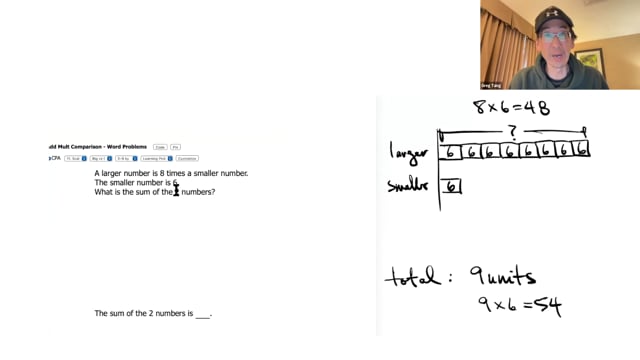 Greg Tang
8 x 6 = 48
?
larger 6 6 6 6 6 6 6 6
smaller 6
total: 9 units
9 x 6 = 54
add Mult Comparison - Word Problems
CPA
A larger number is 8 times a smaller number.
The smaller number is 6.
What is the sum of the 2 numbers?
The sum of the 2 numbers is ____.